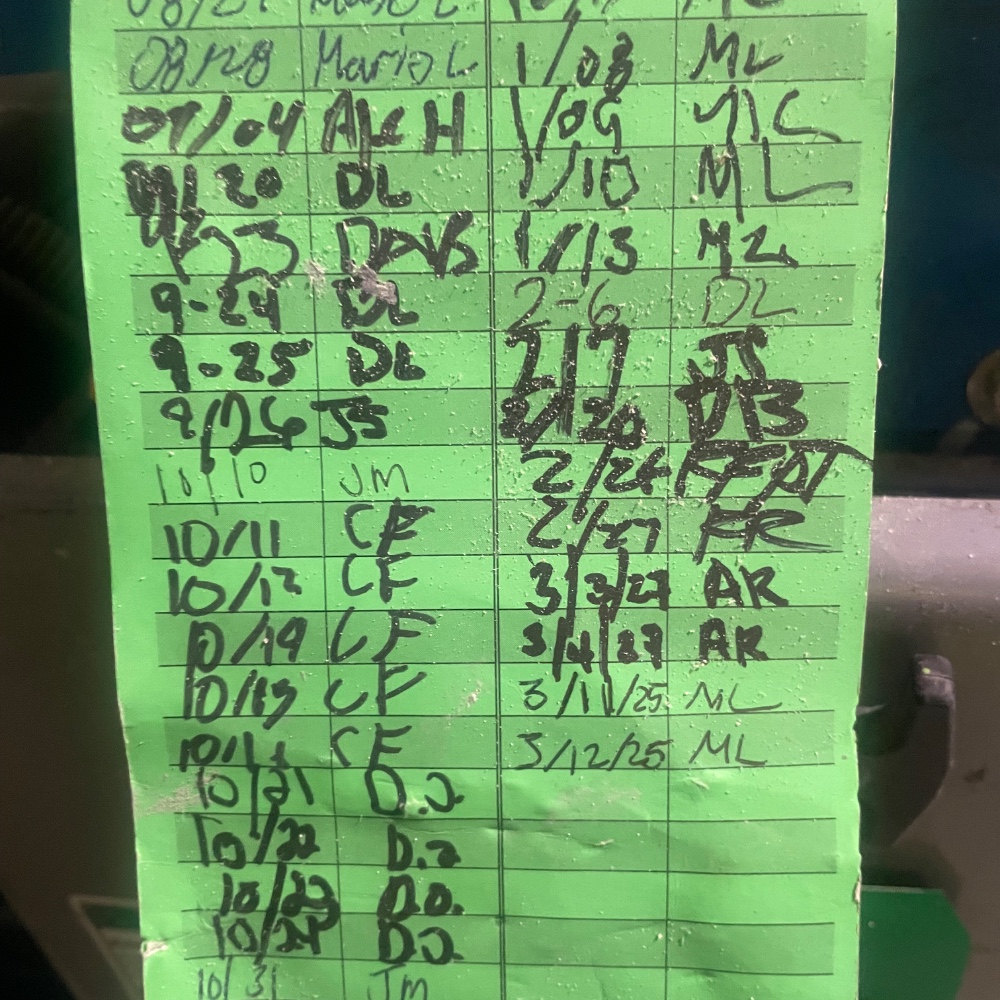 08/28 Mario L
1/08 ML
09/04 Alec H
1/09 MC
20 DL
1/10 ML
23
1/13 ML
9-24 DL
2-6 DL
9-25 DL
2/7 JS
9/26 JS
20 DB
10/10 JM
2/26
10/11 CF
2/27 FR
10/12 CF
3/3/27 AR
10/14 CF
3/4/27 AR
10/15 CF
3/11/25 ML
10/ CF
3/12/25 ML
10/21 D.J.
10/22 D.J.
10/23 D.O.
10/24 D.J.
10/31 Jm